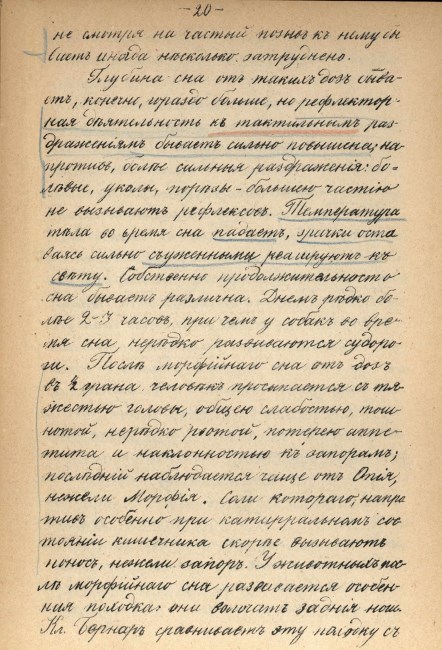 -20-
не смотря на частый позывъ къ нему бы
ваетъ иногда нѣсколько затруднено.
Глубина сна отъ такихъ дозъ быва-
етъ, конечно, гораздо больше, но рефлектор-
ная дѣятельность къ тактильнымъ раз-
драженіямъ бываетъ сильно повышена; на-
противъ, болѣе сильныя раздраженія: бо-
левые, уколы, порѣзы – большею частію
не вызываютъ рефлексовъ. Температура
тѣла во время сна падаетъ, зрачки оста
ваясь сильно съуженными реагируютъ къ
свѣту. Собственно продолжительность
сна бываетъ различна. Днемъ рѣдко бо-
лѣе 2-3 часовъ, при чемъ у собакъ во вре-
мя сна, нерѣдко развиваются судоро-
ги. Послѣ морфійнаго сна отъ дозъ
въ ½ грана человѣкъ просыпается съ тя-
жестью головы, общею слабостью, тош
нотой, нерѣдко рвотой, потерею аппе-
тита и наклонностью къ запорамъ;
послѣдній наблюдается чаще отъ Опія,
нежели Морфія. Соли котораго, напро
тивъ особенно при катарральномъ сос
тояніи кишечника скорѣе вызываютъ
поносъ, нежели запоръ. У животныхъ пос-
лѣ морфійнаго сна развивается особен-
ная походка: они волочатъ заднія ноги.
Кл. Бернаръ сравниваетъ эту походку съ